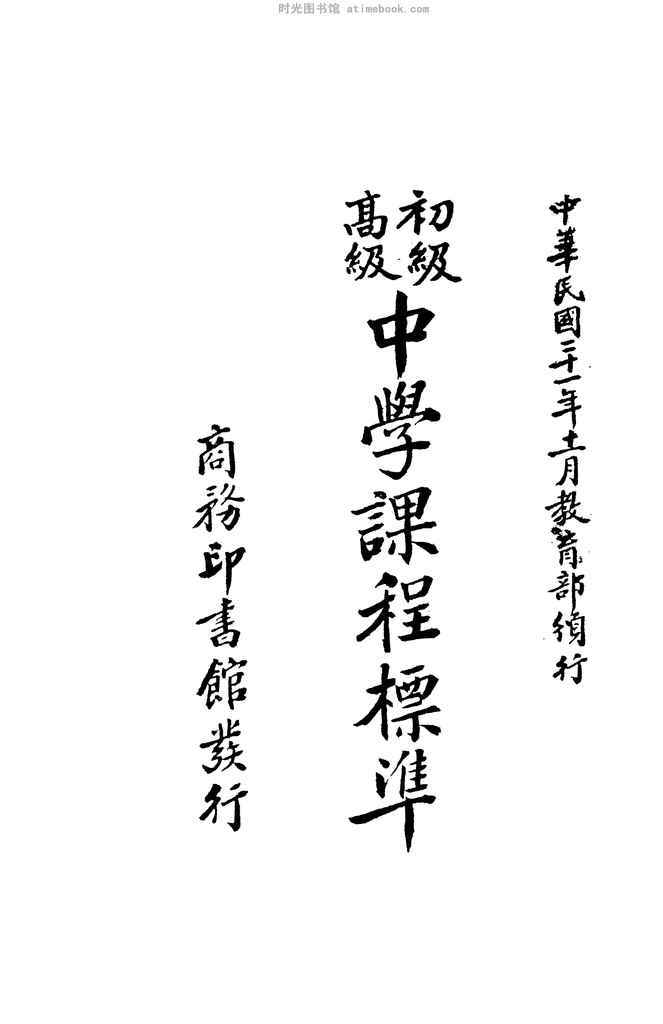 时光图书馆 atimebook.com
中華民國二十一年十一月教育部頒行
初級
高級
中學課程標準
商務印書館發行